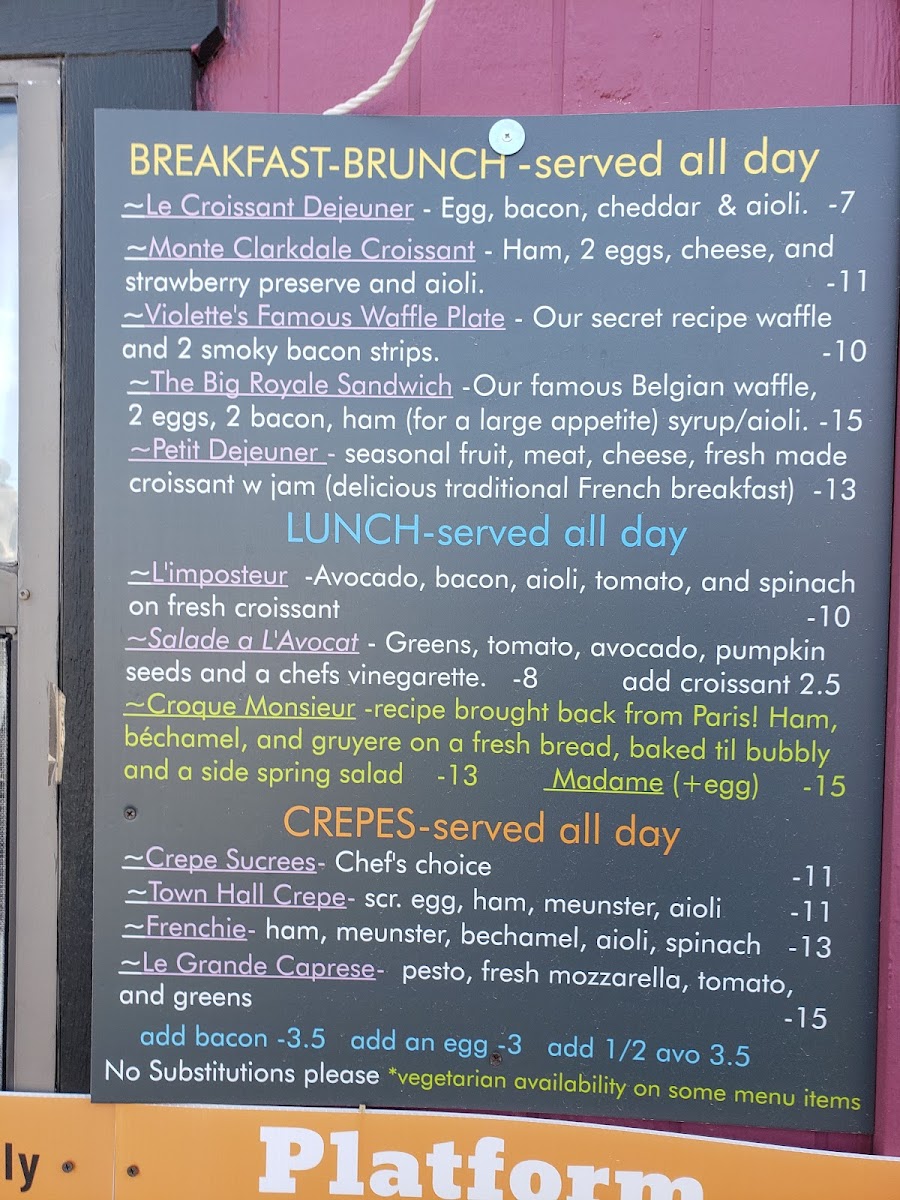 BREAKFAST-BRUNCH -served all day
~Le Croissant Dejeuner - Egg, bacon, cheddar & aioli. -7
~Monte Clarkdale Croissant - Ham, 2 eggs, cheese, and
strawberry preserve and aioli. -11
~Violette's Famous Waffle Plate - Our secret recipe waffle
and 2 smoky bacon strips. -10
~The Big Royale Sandwich -Our famous Belgian waffle,
2 eggs, 2 bacon, ham (for a large appetite) syrup/aioli. -15
~Petit Dejeuner - seasonal fruit, meat, cheese, fresh made
croissant w jam (delicious traditional French breakfast) -13
LUNCH-served all day
~L'imposteur -Avocado, bacon, aioli, tomato, and spinach
on fresh croissant -10
~Salade a L'Avocat - Greens, tomato, avocado, pumpkin
seeds and a chefs vinegarette. -8 add croissant 2.5
~Croque Monsieur -recipe brought back from Paris! Ham,
béchamel, and gruyere on a fresh bread, baked til bubbly
and a side spring salad -13 Madame (+egg) -15
CREPES-served all day
~Crepe Sucrees- Chef's choice -11
~Town Hall Crepe- scr. egg, ham, meunster, aioli -11
~Frenchie- ham, meunster, bechamel, aioli, spinach -13
~Le Grande Caprese- pesto, fresh mozzarella, tomato,
and greens -15
add bacon -3.5 add an egg -3 add 1/2 avo 3.5
No Substitutions please *vegetarian availability on some menu items
ly Platform